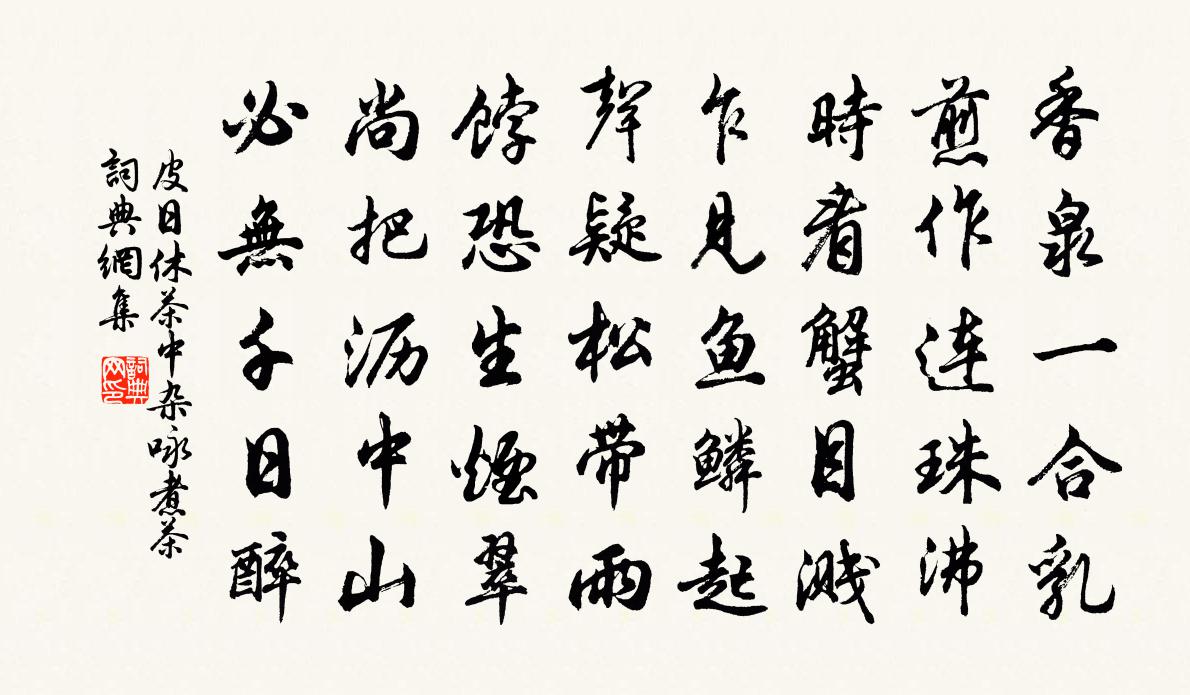 香泉一合乳
煎作连珠沸
時看蟹目溅
乍見鱼鳞起
聲疑松带雨
餑恐生煙翠
尚把沥中山
必無千日醉
皮日休茶中杂咏煮茶
詞典網集
詞典网印